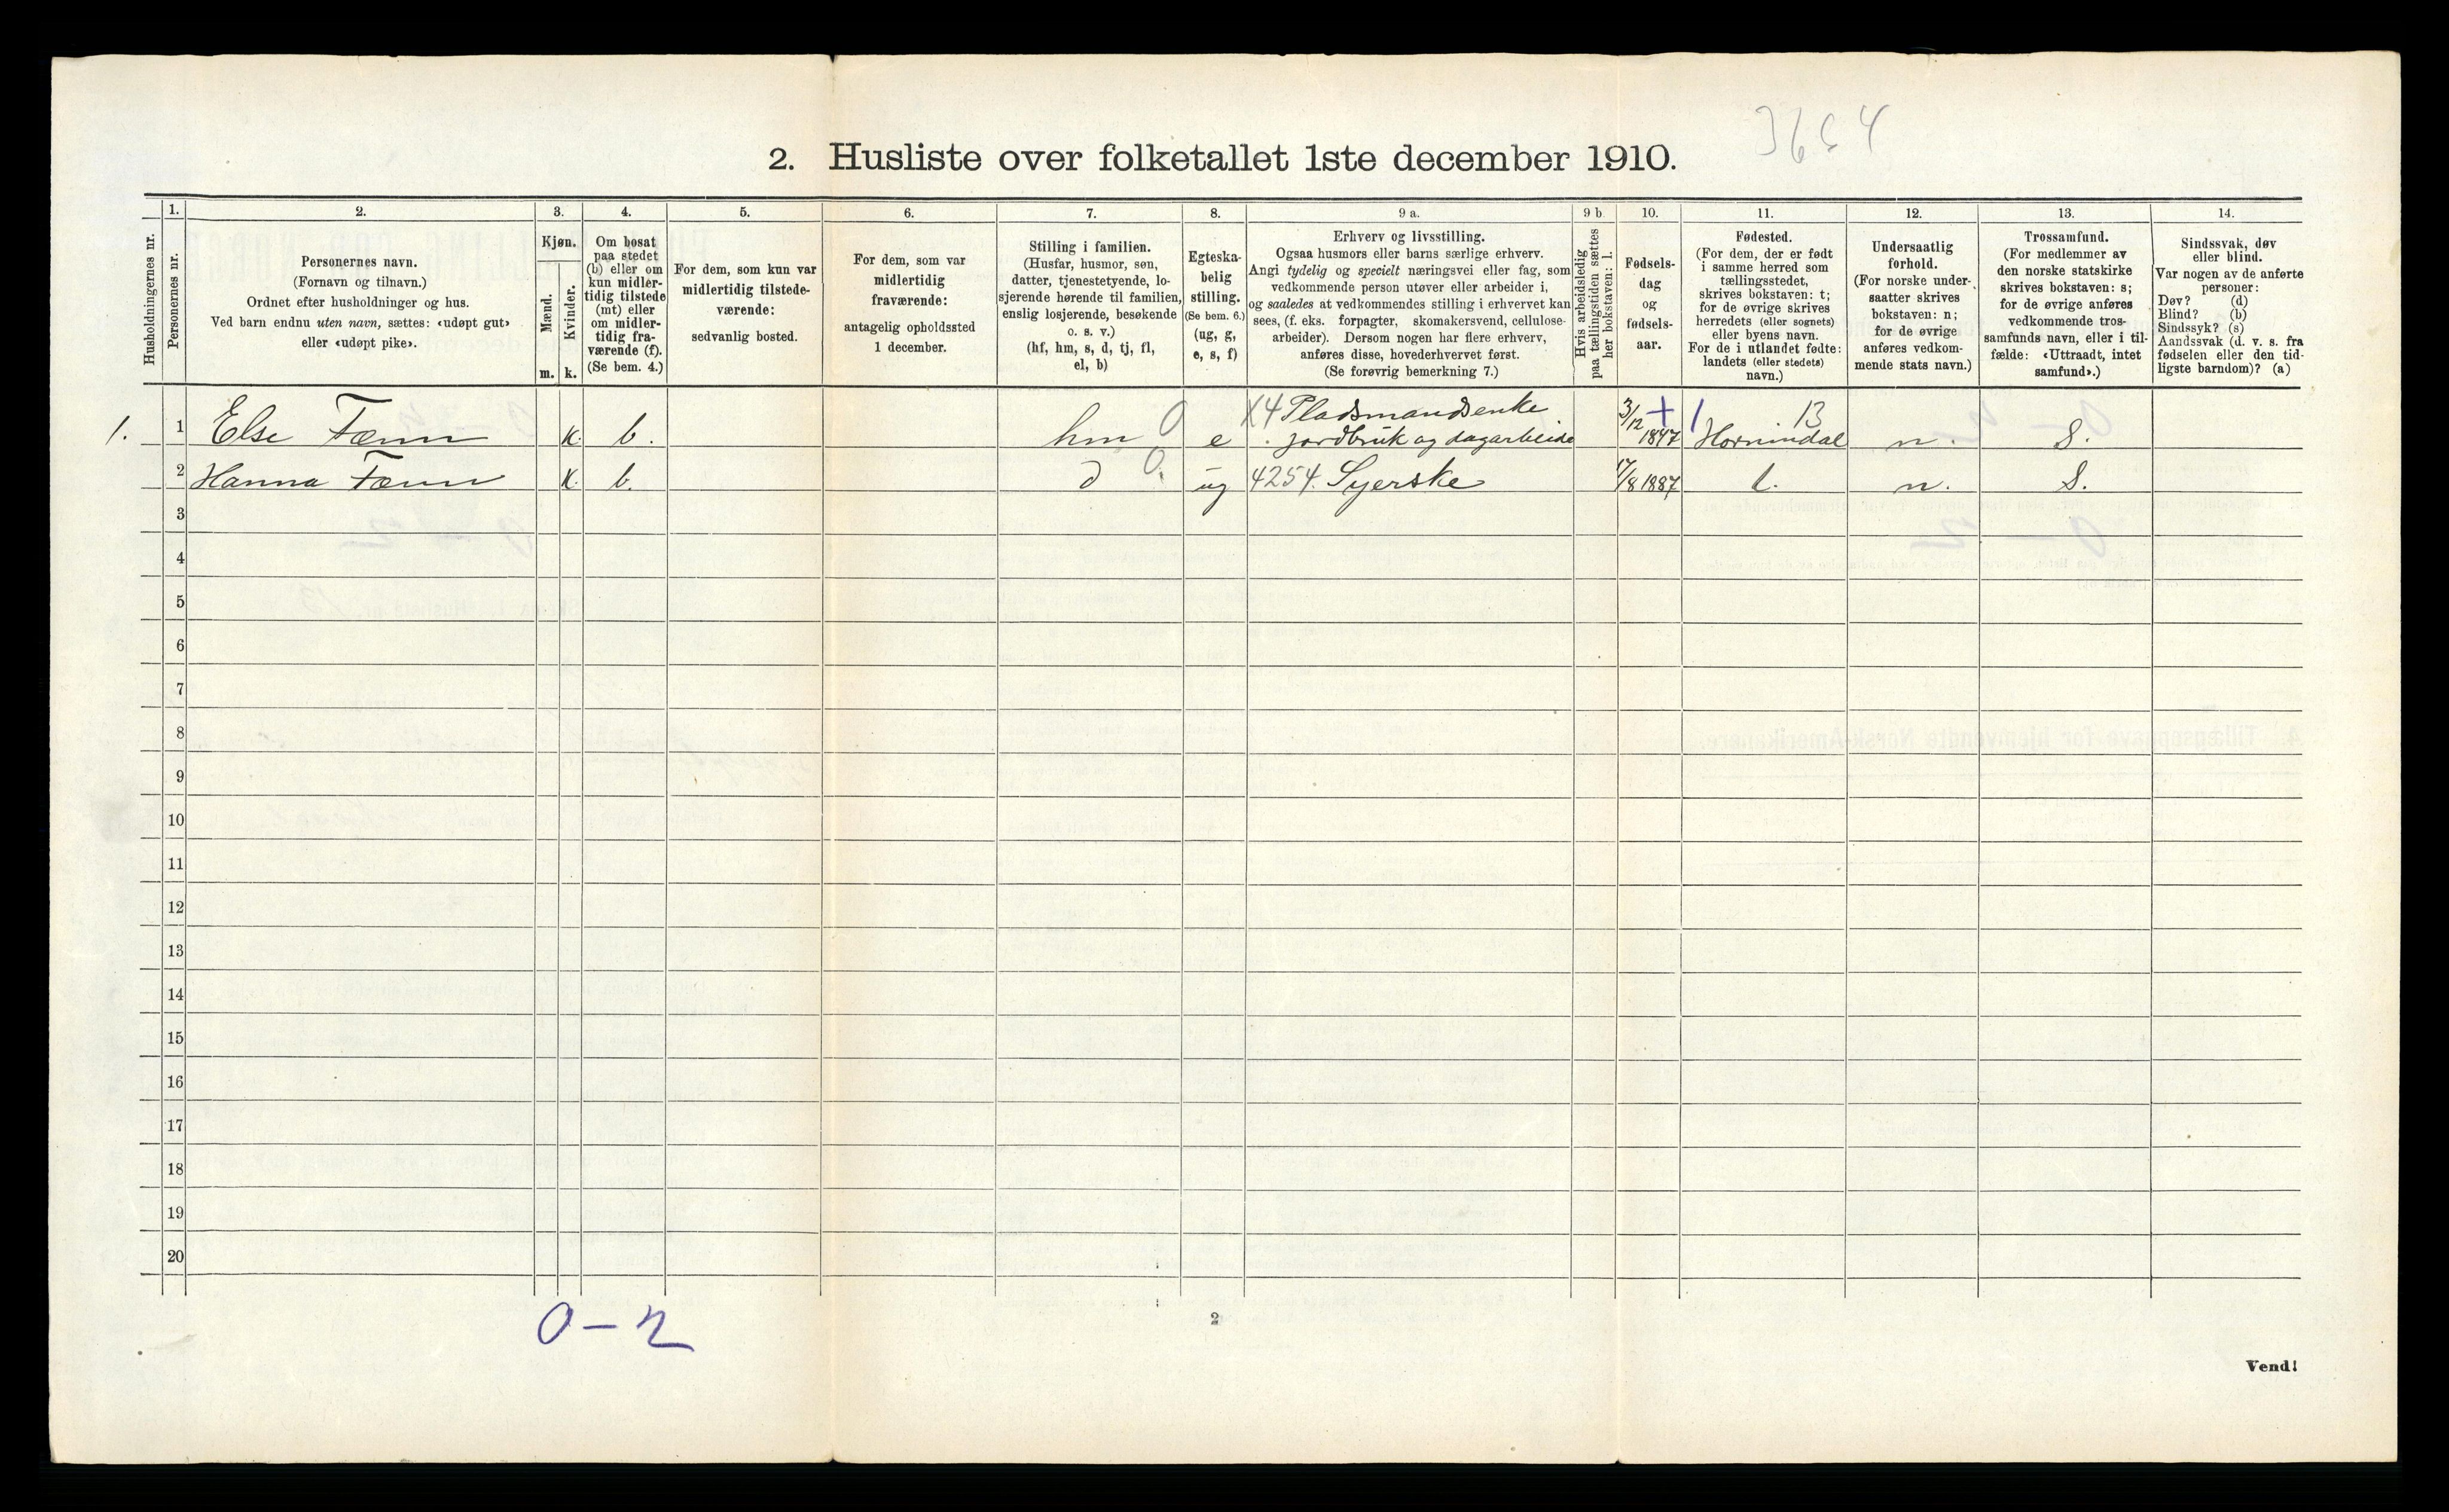 3664
2. Husliste over folketallet 1ste december 1910.
Husholdningernes nr.
1.
Personernes nr.
2.
Personernes navn.
(Fornavn og tilnavn.)
Ordnet efter husholdninger og hus.
Ved barn endnu uten navn, sættes: «udøpt gut»
eller «udøpt pike».
3.
Kjøn.
Mænd.
m.
Kvinder.
k.
4.
Om bosat
paa stedet
(b) eller om
kun midler-
tidig tilstede
(mt) eller
om midler-
tidig fra-
værende (f).
(Se bem. 4.)
5.
For dem, som kun var
midlertidig tilstede-
værende:
sedvanlig bosted.
6.
For dem, som var
midlertidig
fraværende:
antagelig opholdssted
1 december.
7.
Stilling i familien.
(Husfar, husmor, søn,
datter, tjenestetyende, lo-
sjerende hørende til familien,
enslig losjerende, besøkende
o. s. v.)
(hf, hm, s, d, tj, fl,
el, b)
8.
Egteska-
belig
stilling.
(Se bem. 6.)
(ug, g,
e, s, f)
9 a.
Erhverv og livsstilling.
Ogsaa husmors eller barns særlige erhverv.
Angi tydelig og specielt næringsvei eller fag, som
vedkommende person utøver eller arbeider i,
og saaledes at vedkommendes stilling i erhvervet kan
sees, (f. eks. forpagter, skomakersvend, cellulose-
arbeider). Dersom nogen har flere erhverv,
anføres disse, hovederhvervet først.
(Se forøvrig bemerkning 7.)
9 b
Hvis arbeidsledig
paa tællingstiden sættes
her bokstaven: l.
10.
Fødsels-
dag
og
fødsels-
aar.
11.
Fødested.
(For dem, der er født
i samme herred som
tællingsstedet,
skrives bokstaven: t;
for de øvrige skrives
herredets (eller sognets)
eller byens navn.
For de i utlandet fødte:
landets (eller stedets)
navn.)
12.
Undersaatlig
forhold.
(For norske under-
saatter skrives
bokstaven: n;
for de øvrige
anføres vedkom-
mende stats navn.)
13.
Trossamfund.
(For medlemmer av
den norske statskirke
skrives bokstaven: s;
for de øvrige anføres
vedkommende tros-
samfunds navn, eller i til-
fælde: «Uttraadt, intet
samfund».)
14.
Sindssvak, døv
eller blind.
Var nogen av de anførte
personer:
Døv? (d)
Blind? (b)
Sindssyk? (s)
Aandssvak (d. v. s. fra
fødselen eller den tid-
ligste barndom)? (a)
1. 1 Else Tænn k. b. hm 0 e X4 Pladsmandsenke 3/12 + 1 13
. jordbruk og dagarbeide 1847 Hornindal n. S.
2 Hanna Tænn k. b. d 0. ug 4254. Syerske 17/8 1887 t. n. S.
3
4
5
6
7
8
9
10
11
12
13
14
15
16
17
18
19
20
0 – 2
2
Vend!